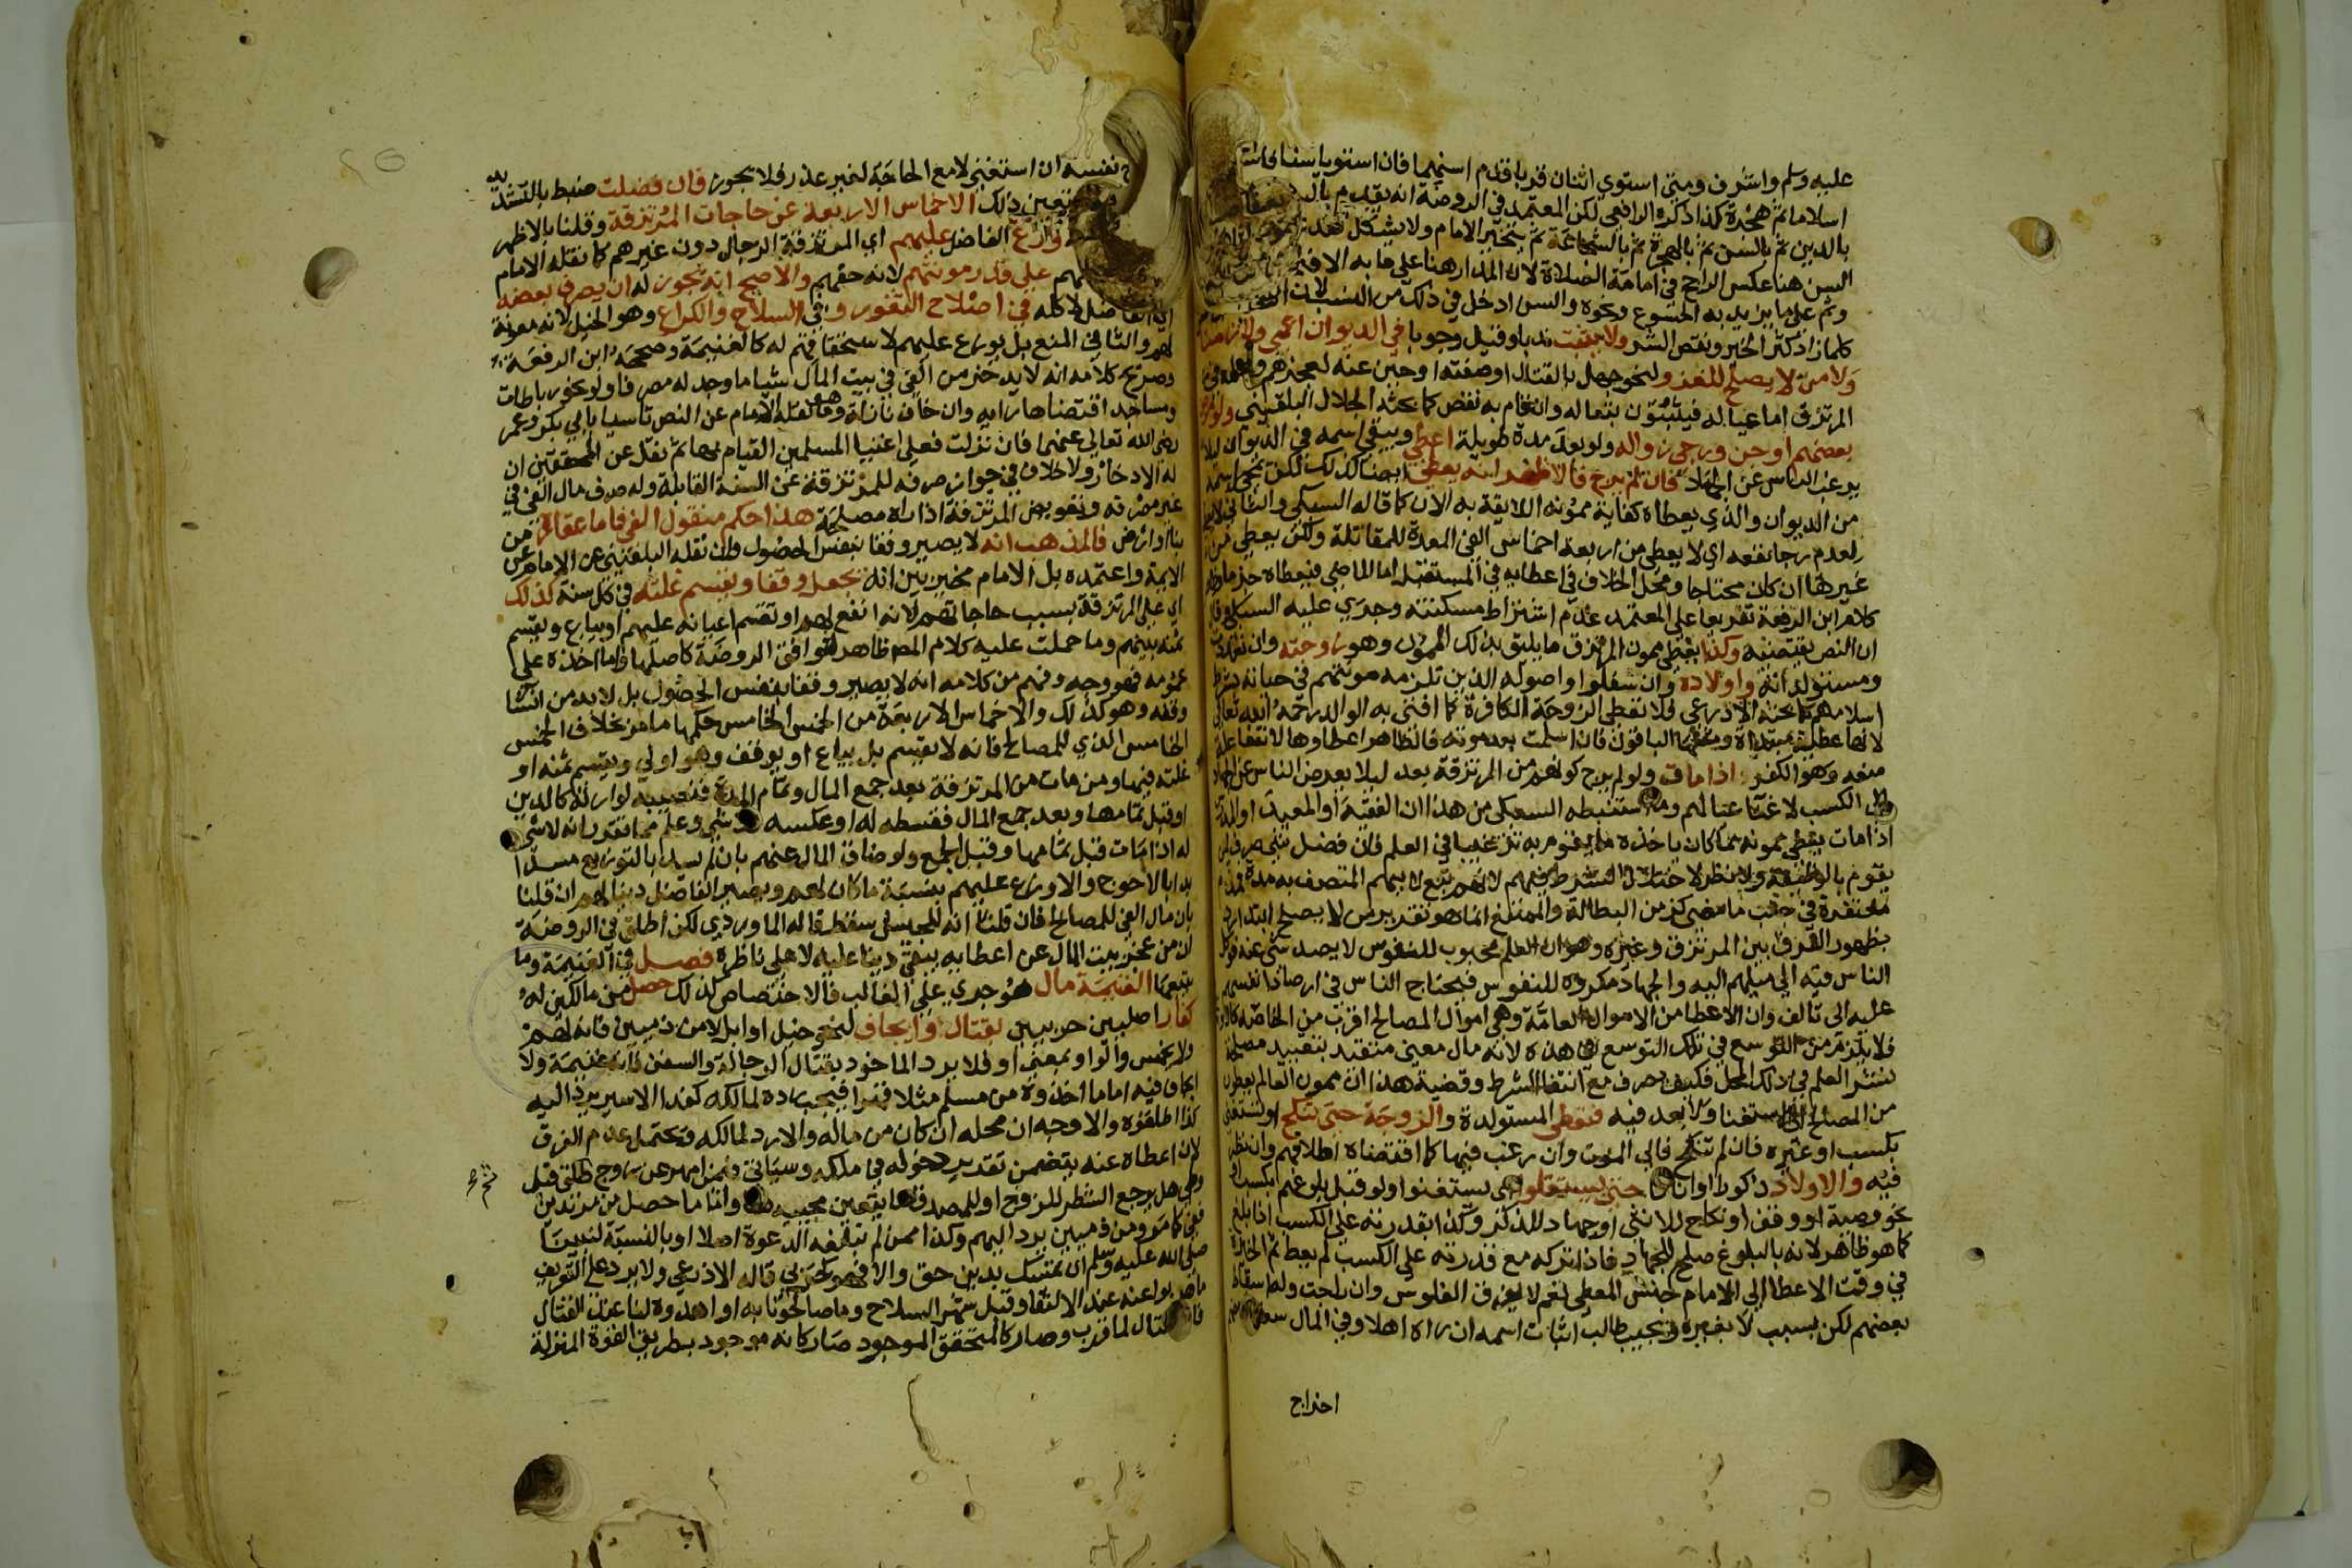 عليه وسلم واشرف ومتى استوي اثنان قربا قدم اسنهما فان استويا سنا
اسلاما ثم هجرة كذا ذكره الرافعي لكن المعتمد في الروضة انه يقدم
بالدين ثم بالسن ثم بالهجرة ثم بالشجاعة ثم يتخير الامام ولا يشكل
السن هنا عكس الراجح في امامة الصلاة لان المدار هنا على ما به الافتخار
وثم على ما يزيد به الخشوع ونحوه والسن ادخل في ذلك من النسب لان
كلما زاد كثر الخير ونقص الشر ولا يثبت ندبا وقيل وجوبا في الديوان اعمى ولا زمنا
ولا من لا يصلح للغزو لنحو جهل بالقتال وصفته او جبن عنه لعجزهم
المرتزق اما عياله فيثبتون بتعا له وان قام به نقص كما بحثه الجلال البلقيني ولو مرض
بعضهم او جن ورجي زواله ولو بعد مدة طويلة اعطي ويبقى اسمه في الديوان ليلا
يرغب الناس عن الجهاد فان لم يرج فالاظهر انه يعطي ايضا لذلك لكن يمحى اسمه
من الديوان والذي يعطاه كفاية ممونه اللايقة به الان كما قاله السبكي والثاني لا
لعدم رجا نفعه اي لا يعطى من اربعة اخماس الفي المعدة للمقاتلة ولكن يعطي من
غيرها ان كان محتاجا ومحل الخلاف في اعطايه في المستقبل اما الماضي فيعطاه جزما
كلام ابن الرفعة تفريعا على المعتمد عدم اشتراط مسكنته وجرى عليه السبكي
ان النص يقتضيه وكذا يعطي ممون المرتزق ما يليق بذلك الممون وهو زوجته وان
ومستولداته واولاده وان سفلوا واصوله الذين تلزمه مونتهم في حياته بشرط
اسلامهم كما بحثه الاذرعي فلا تعطى الزوجة الكافرة كما افتى به الوالد رحمه الله تعالى
لانها عطية مبتداة الباقون فان اسلمت بعد موته فالظاهر اعطاوها لانتفا علة
منعه وهو الكفر اذا مات ولو لم يرج كونهم من المرتزقة بعد ليلا يعرض الناس عن الجهاد
الى الكسب لاغنا عيالهم وما استنبطه السبكي من هذا ان الفقيه او المعيد او المدرس
اذا مات يعطى ممونه مما كان ياخذه ما يقوم به ترغيبا في العلم فان فضل شي صرف لمن
يقوم بالوظيفة ولا نظر لاختلال الشرط فيهم لانهم تبع لابيهم المتصف به مدة
مغتفرة في جنب ما مضى كزمن البطالة والممتنع انما هو تقرير من لا يصلح ابتدا
بظهور الفرق بين المرتزق وغيره وهو ان العلم محبوب للنفوس لا يصد شي عنه فوكل
الناس فيه الى ميلهم اليه والجهاد مكروه للنفوس فيحتاج الناس في ارصاد انفسهم
عليه الى تالف وان الاعطا من الاموال العامة وهي اموال المصالح اقرب من الخاصة
فلا يلزم من التوسع في تلك التوسع في هذه لانه مال معين متقيد بتقييد مصلحة
نشر العلم في ذلك المحل فكيف يصرف مع انتفا الشرط وقضية هذا ان ممون العالم يعطون
من المصالح الى الاستغنا ولا بعد فيه فتعطي المستولدة والزوجة حتى تنكح او تستغني
بكسب او غيره فان لم تنكح فالى الموت وان رغب فيها كما اقتضاه اطلاقهم وان نظر
فيه والاولاد ذكورا او اناثا حتى يستقلوا اي يستغنوا ولو قبل بلوغهم بكسب
نحو وصية او وقف او نكاح للانثى او جهاد للذكر وكذا بقدرته على الكسب اذا بلغ
كما هو ظاهر لانه بالبلوغ صلح للجهاد فاذا تركه مع قدرته على الكسب لم يعط ثم
في وقت الاعطا الى الامام جنس المعطى نعم لا يفرق الفلوس وان راجت وله اسقاط
بعضهم لكن بسبب لا بغيره ويجيب طالب اثبات اسمه ان راه اهلا وفي المال سعة
اخراج
نفسه ان استغنى لا مع الحاجة لغير عذر فلا يجوز فان فضلت ضبط بالتشديد
ذلك الاخماس الاربعة عن حاجات المرتزقة وقلنا بالاظهر
وزع الفاضل عليهم اي المرتزقة الرجال دون غيرهم كما نقله الامام
على قدر مونتهم لانه حقهم والاصح انه يجوز له ان يصرف بعضه
اي الفاضل لا كله في اصلاح الثغور وفي السلاح والكراع وهو الخيل لانه معونة
لهم والثاني المنع بل يوزع عليهم لاستحقاقهم له كالغنيمة وصححه ابن الرفعة
وصريح كلامه انه لا يدخر من الفي في بيت المال شيا ما وجد له مصرفا ولو نحو رباطات
ومساجد اقتضاها رايه وان خاف نازلة وهو ما نقله الامام عن النص تاسيا بابي بكر وعمر
رضي الله تعالى عنهما فان نزلت فعلى اغنيا المسلمين القيام بها ثم نقل عن المحققين ان
له الادخار ولا خلاف في جواز صرفه للمرتزقة عن السنة القابلة وله صرف مال الفي في
غير مصرفه وتعويض المرتزقة اذا راه مصلحة هذا حكم منقول الفي فاما عقاره من
بنا او ارض فالمذهب انه لا يصير وقفا بنفس الحصول وان نقله البلقيني عن الامام عن
الايمة واعتمده بل الامام مخير بين انه يجعل وقفا ويقسم غلته في كل سنة كذلك
اي على المرتزقة بسبب حاجاتهم لانه انفع لهم او تقسم اعيانه عليهم او يباع ويقسم
ثمنه بينهم وما حملت عليه كلام المص ظاهر لتوافق الروضة كاصلها واما اخذه على
عمومه فهو وجه وفهم من كلامه انه لا يصير وقفا بنفس الحصول بل لا بد من انشا
وقفه وهو كذلك والاخماس الاربعة من الخمس الخامس حكمها ما مر بخلاف الخمس
الخامس الذي للمصالح فانه لا يقسم بل يباع او يوقف وهو اولى ويقسم ثمنه او
غلته فيها ومن مات من المرتزقة بعد جمع المال وتمام المدة فنصيبه لوارثه كالدين
او قبل تمامها وبعد جمع المال فقسطه له او عكسه فلا شي وعلم مما تقرر انه لا شي
له اذا مات قبل تمامها وقبل الجمع ولو ضاق المال عنهم بان لم يسد بالتوزيع مسدا
بدا بالاحوج والا وزع عليهم بنسبة ما كان لهم ويصير الفاضل دينا لهم ان قلنا
بان مال الفي للمصالح فان قلنا انه للجيش سقط قاله الماوردي لكن اطلق في الروضة
ان من عجز بيت المال عن اعطايه يبقى دينا عليه لا على ناظره فصل في الغنيمة وما
يتبعها الغنيمة مال هو جري على الغالب فالاختصاص كذلك حصل من مالكين له
كفار اصليين حربيين بقتال وايجاف لنحو خيل او ابل لا من ذميين فانه لهم
ولا يخمس والواو بمعنى او فلا يرد الماخوذ بقتال الرجالة والسفن فانه غنيمة ولا
ايجاف فيه اما ما اخذوه من مسلم مثلا قهرا فيجب رده لمالكه كفدا الاسير يرد اليه
كذا اطلقوه والاوجه ان محله ان كان من ماله والا رد لمالكه ويحتمل عدم الفرق
لان اعطاه عنه يتضمن تقدير دخوله في ملكه وسياتي فيمن امهر عن زوج طلق قبل
هل يرجع الشطر للزوج او للمصدق ما يتعين مجييه هنا واما ما حصل من مرتدين
ففي كما مر ومن ذميين يرد اليهم وكذا ممن لم تبلغه الدعوة اصلا او بالنسبة لنبينا
صلى الله عليه وسلم ان تمسك بدين حق والا فهو كحربي قاله الاذرعي ولا يرد على التعريف
ما هربوا عنه عند الالتقا وقبل شهر السلاح وما صالحونا به او اهدوه لنا عند القتال
فان القتال لما قرب وصار كالمتحقق الموجود صار كانه موجود بطريق القوة المنزلة